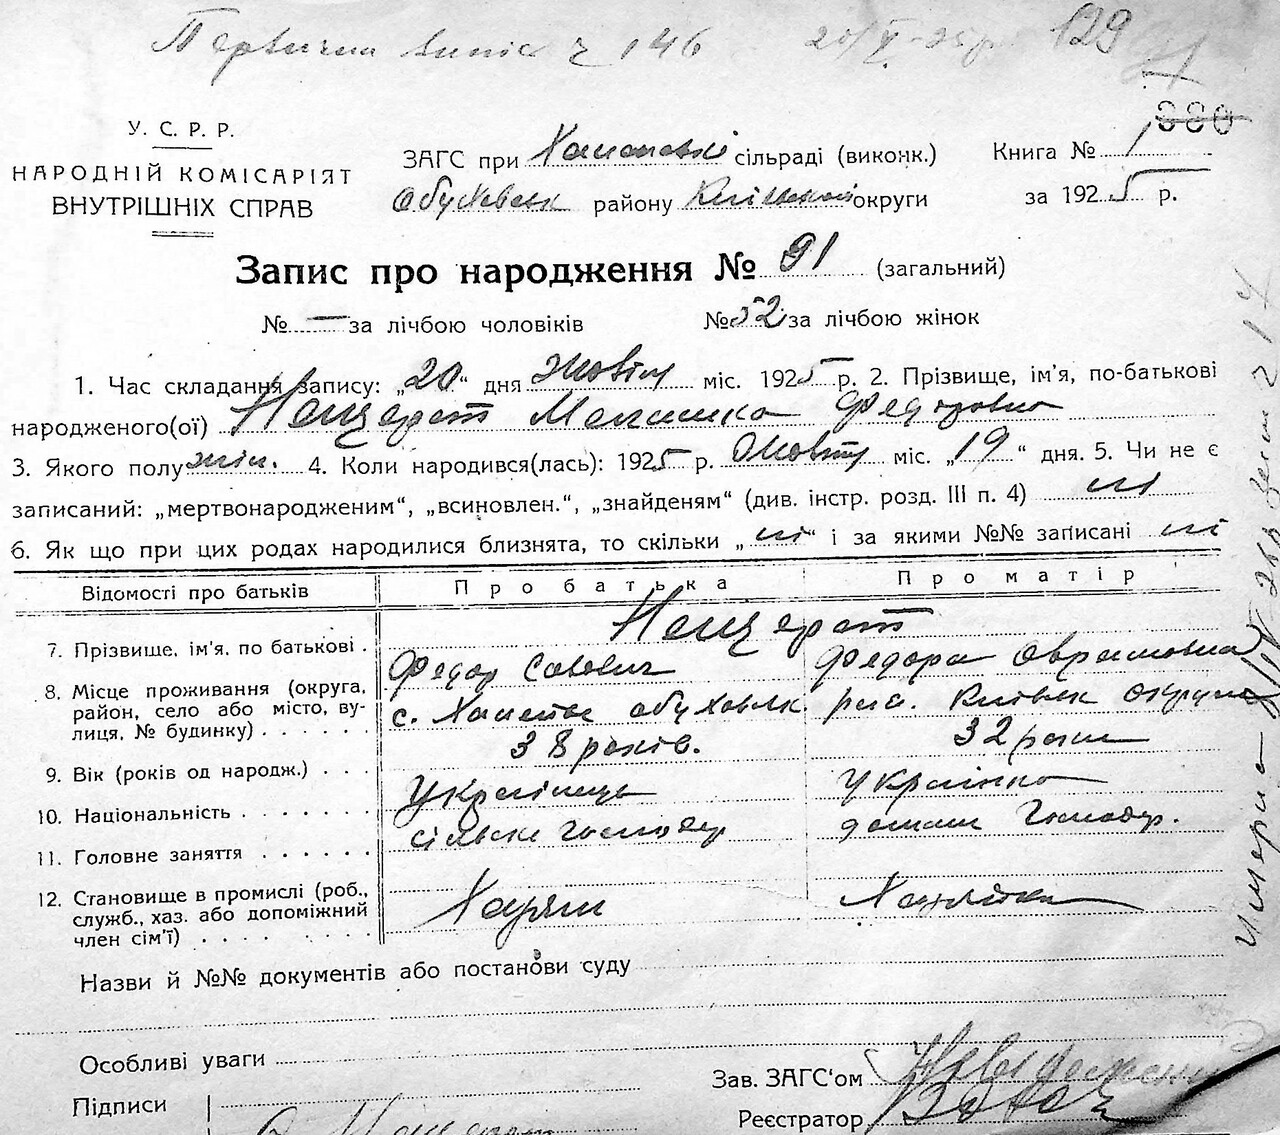 Первичний випис ч 146 129
380
У. С. Р. Р.
НАРОДНІЙ КОМІСАРІЯТ
ВНУТРІШНІХ СПРАВ
ЗАГС при сільраді (виконк.)
Обухівськ району Київської округи
Книга № 1
за 1925 р.
Запис про народження № 91 (загальний)
№ — за лічбою чоловіків № 52 за лічбою жінок
1. Час складання запису: „20“ дня Жовтня міс. 1925 р. 2. Прізвище, ім'я, по-батькові
народженого(ої) Нещерет Меланка Федоровна
3. Якого полу жін. 4. Коли народився(лась): 1925 р. Жовтня міс. „19“ дня. 5. Чи не є
записаний: „мертвонародженим“, „всиновлен.“, „знайденям“ (див. інстр. розд. III п. 4) ні
6. Як що при цих родах народилися близнята, то скільки „ні“ і за якими №№ записані ні
Відомості про батьків Про батька Про матір
Нещерет
7. Прізвище, ім'я, по батькові . Федор Савович Федора Оврамовна
8. Місце проживання (округа, район, село або місто, вулиця, № будинку) . . . . . . с. Обуховськ. рай. Київськ округи
9. Вік (років од народж.) . . . 38 років. 32 роки
10. Національність . . . . . . . Українець Українка
11. Головне заняття . . . . . . сільське господар домашн господар.
12. Становище в промислі (роб., служб., хаз. або допоміжний член сім'ї) . . . . . . . Хазяїн Хазяйка
Назви й №№ документів або постанови суду
Особливі уваги
Підписи
Зав. ЗАГС'ом
Реєстратор